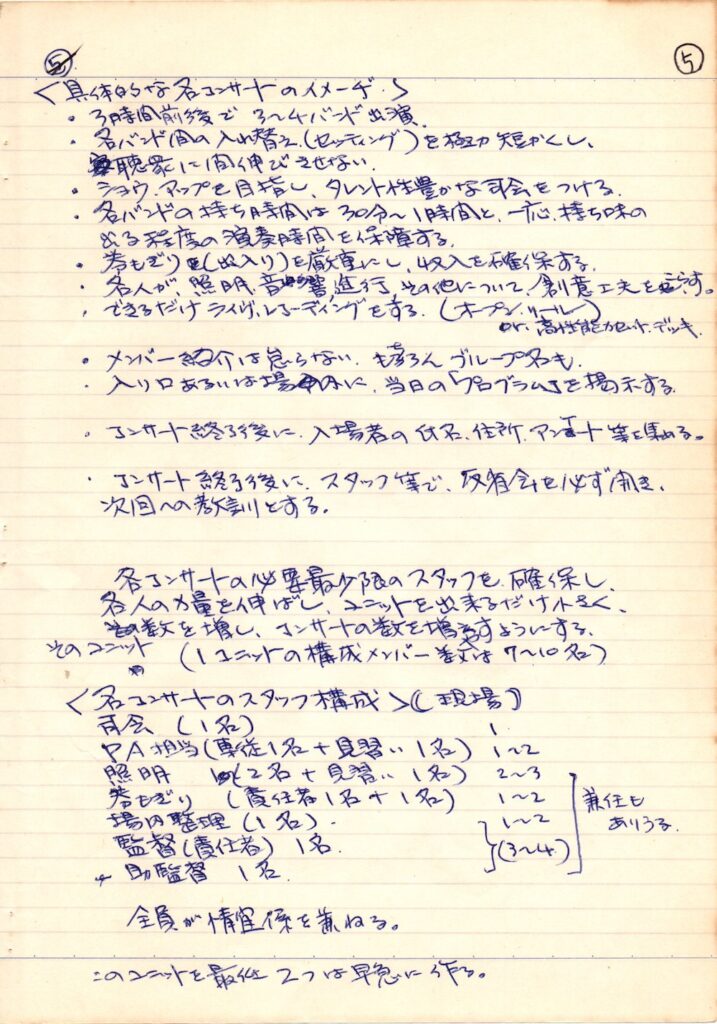 ⑤ ⑤
〈具体的な各コンサートのイメージ〉
・3時間前後で 3〜4バンド出演.
・各バンド間の入れ替え(セッティング)を極力短かくし、
聴衆に間伸びさせない.
・ショウ.アップを目指し、タレント性豊かな司会をつける.
・各バンドの持ち時間は30分〜1時間と、一応、持ち味の
出る程度の演奏時間を保障する.
・券もぎり(出入り)を厳重にし、収入を確保する.
・各人が、照明、音響、進行、その他について、創意工夫を.
・できるだけライヴ.レコーディングをする.(オープン.リール)
or. 高性能カセット.デッキ.
・メンバー紹介は怠らない. もちろん グループ名も.
・入り口あるいは場内に、当日の「プログラム」を掲示する.
・コンサート終了後に、入場者の氏名.住所.アンケート等を集める。
・コンサート終了後に、スタッフ等で、反省会を必ず開き、
次回への教訓とする。
各コンサートの必要最少限のスタッフを、確保し、
各人の力量を伸ばし、ユニットを出来るだけ小さく、
その数を増し、コンサートの数を増やすようにする.
そのユニット (1ユニットの構成メンバー数は7〜10名)
〈各コンサートのスタッフ構成〉(現場)
司会 (1名) 1
PA担当(専従1名+見習い1名) 1〜2
照明 (2名+見習い1名) 2〜3
券もぎり (責任者1名+1名) 1〜2
場内整理(1名). 1〜2
監督(責任者) 1名. (3〜4)
助監督 1名.
兼任も
ありうる.
全員が情宣係を兼ねる。
このユニットを最低2つは早急に作る。